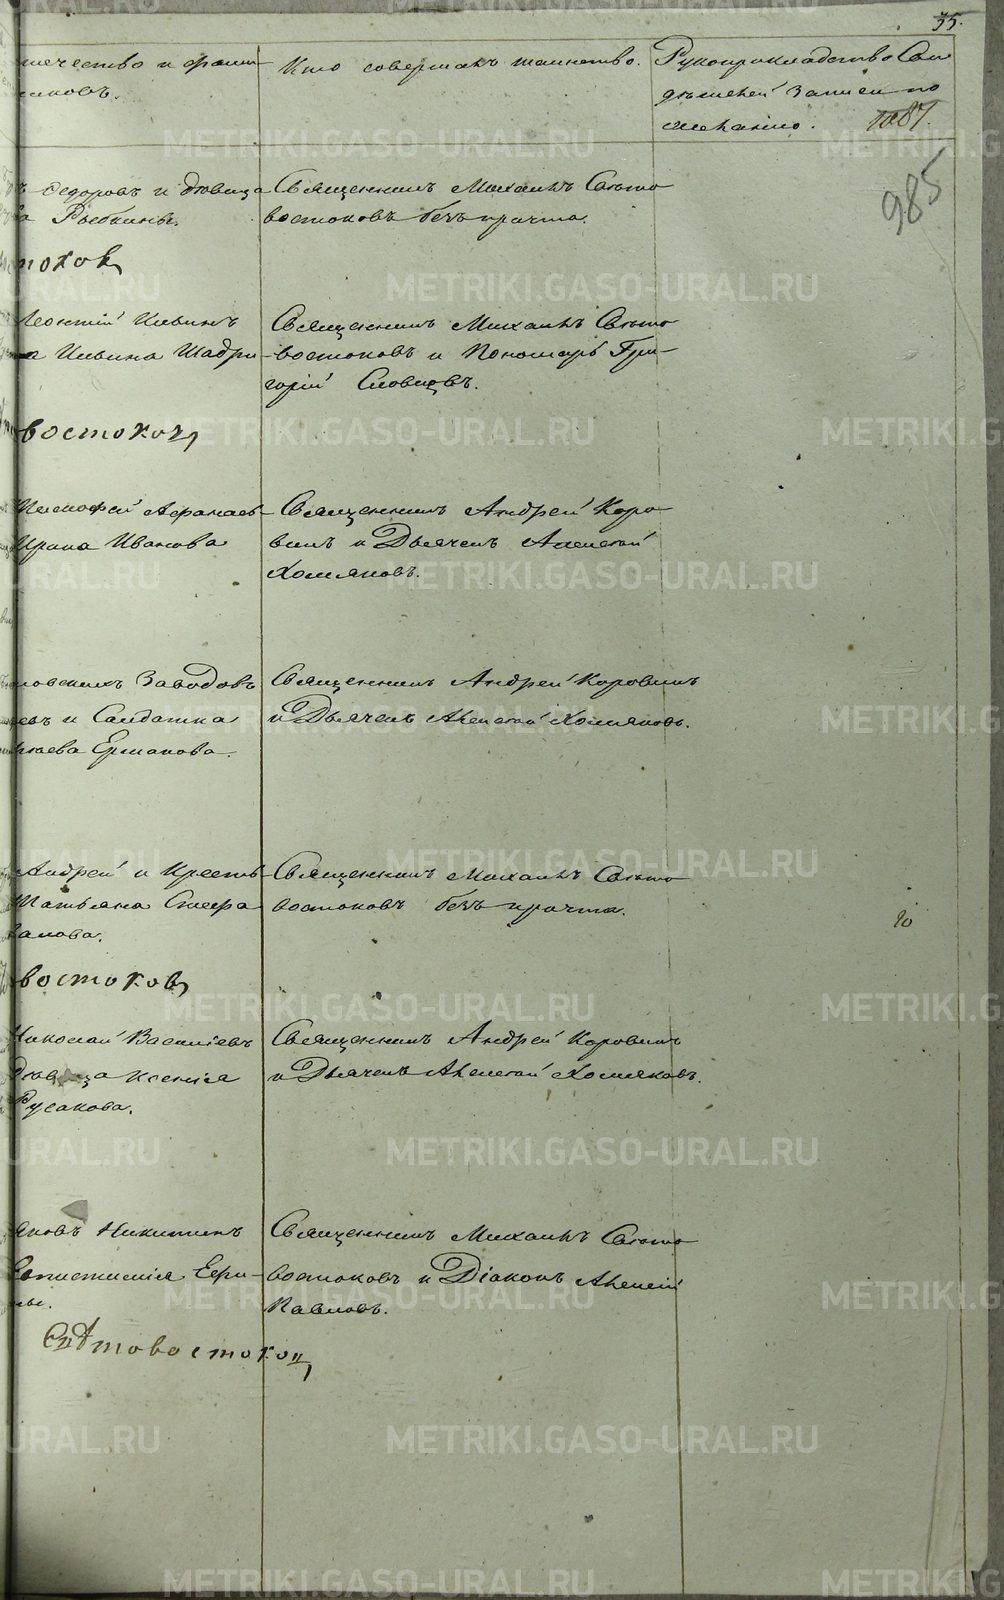 35.
течество и фами-
ликовъ.
Кто совершалъ таинство.
Рукоприкладство Сви
дѣтелей записи по
желанію.
1087.
985
Ѳедоровъ и дѣвица
Рыбкины.
Священникъ Михаилъ Свѣто
востоковъ безъ причта.
токов
Леонтій Ильинъ
Ильина Шадри-
Священникъ Михаилъ Свѣто
востоковъ и Пономарь Гри-
горій Словцовъ.
востоков
Афанась-
Ирина Иванова
Священникъ Андрей Коро
винъ и Дьячекъ Алексѣй
Хомяковъ.
ловскихъ Заводовъ
и Солдатка
Ермакова.
Священникъ Андрей Коровинъ
и Дьячекъ Алексѣй Хомяковъ.
Андрей и Кресть-
Татьяна
Священникъ Михаилъ Свѣто
востоковъ безъ причта.
10
востоков
Николай Васильевъ
дѣвица Ксенія
Русакова.
Священникъ Андрей Коровинъ
и Дьячекъ Алексѣй Хомяковъ.
Яковъ Никитинъ
Священникъ Михаилъ Свѣто
востоковъ и Діаконъ Алексѣй
Павловъ.
Свѣтовостоков
METRIKI.GASO-URAL.RU